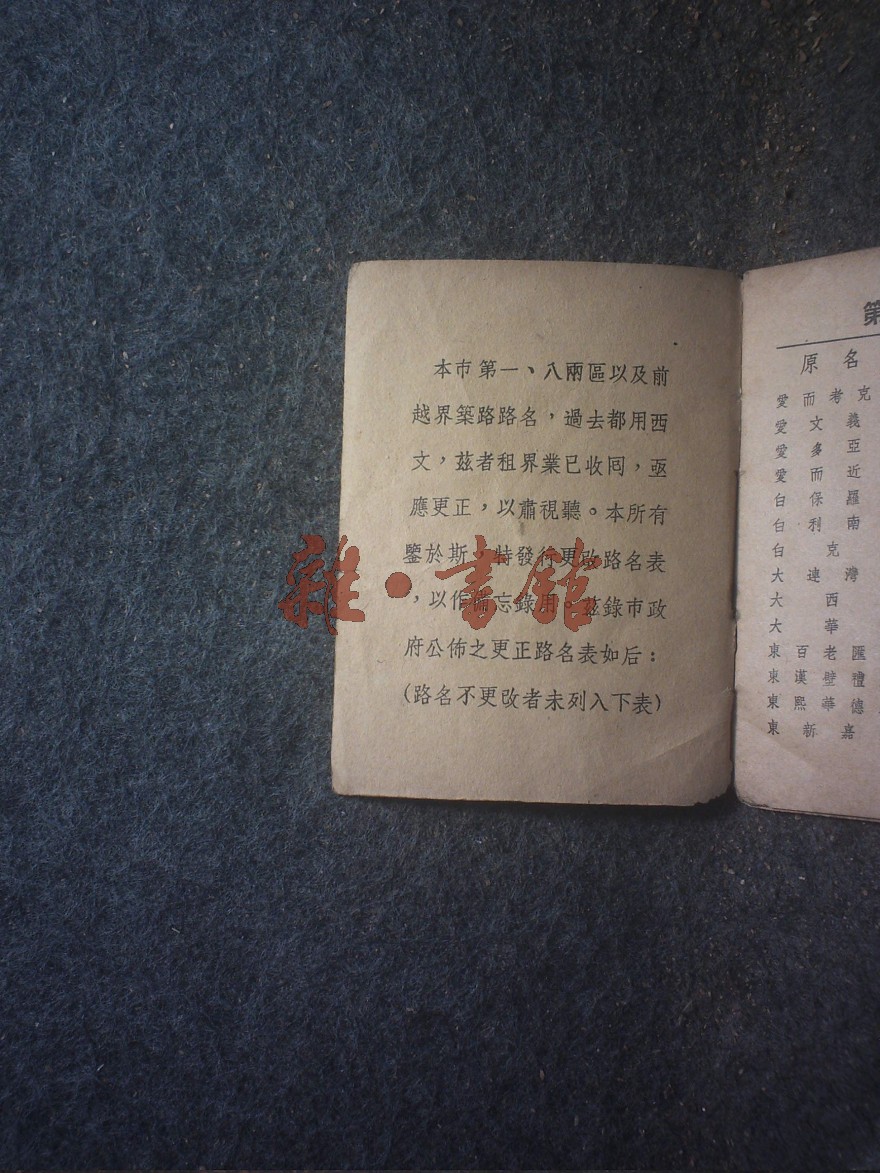 本市第一、八兩區以及前
越界築路路名，過去都用西
文，茲者租界業已收囘，亟
應更正，以肅視聽。本所有
鑒於斯，特發行更改路名表
，以作備忘錄用。茲錄市政
府公佈之更正路名表如后：
(路名不更改者未列入下表)
雜·書館
第
原名
愛而考克
愛文義
愛多亞
愛而近
白保羅
白利南
白克
大連灣
大西
大華
東百老匯
東漢壁禮
東熙華德
東新嘉